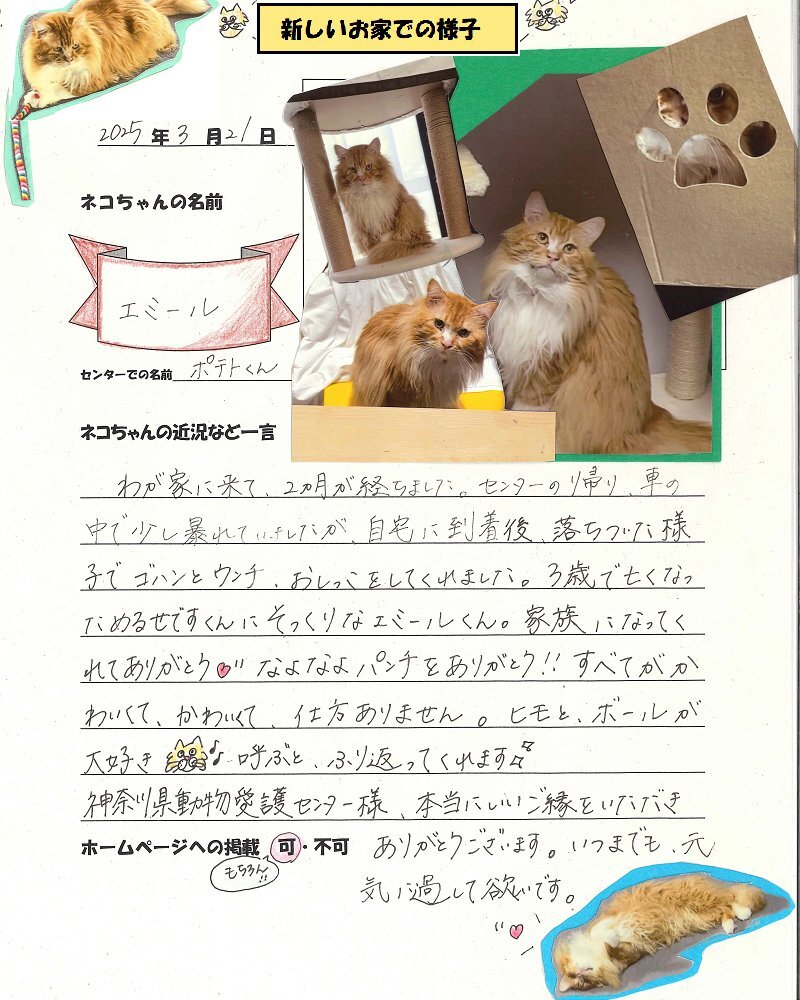 新しいお家での様子
2025年3月21日
ネコちゃんの名前
エミール
センターでの名前 ポテトくん
ネコちゃんの近況など一言
わが家に来て、2ヵ月が経ちました。センターの帰り、車の
中で少し暴れていましたが、自宅に到着後、落ちついた様
子でゴハンとウンチ、おしっこをしてくれました。3歳で亡くなっ
ためるせですくんにそっくりなエミールくん。家族になってく
れてありがとう なよなよパンチをありがとう!! すべてがか
わいくて、かわいくて、仕方ありません。ヒモと、ボールが
大好き 呼ぶと、ふり返ってくれます
神奈川県動物愛護センター様、本当にいいご縁をいただき
ホームページへの掲載 可・不可 ありがとうございます。いつまでも、元
もちろん!!
気に過して欲しいです。